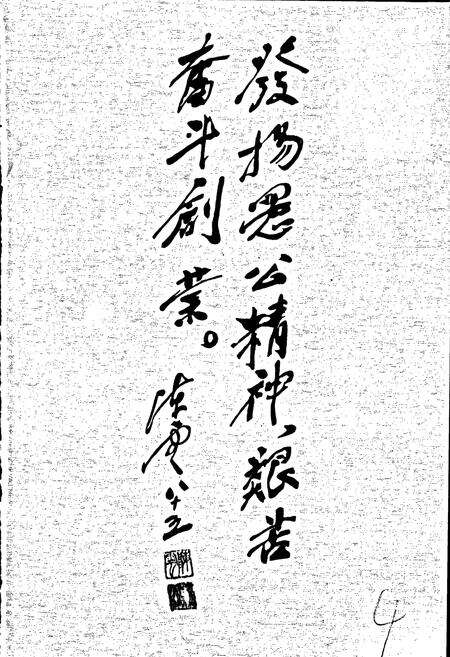 發揚愚公精神、艱苦
奮斗創業。
陳雲 八十五
4